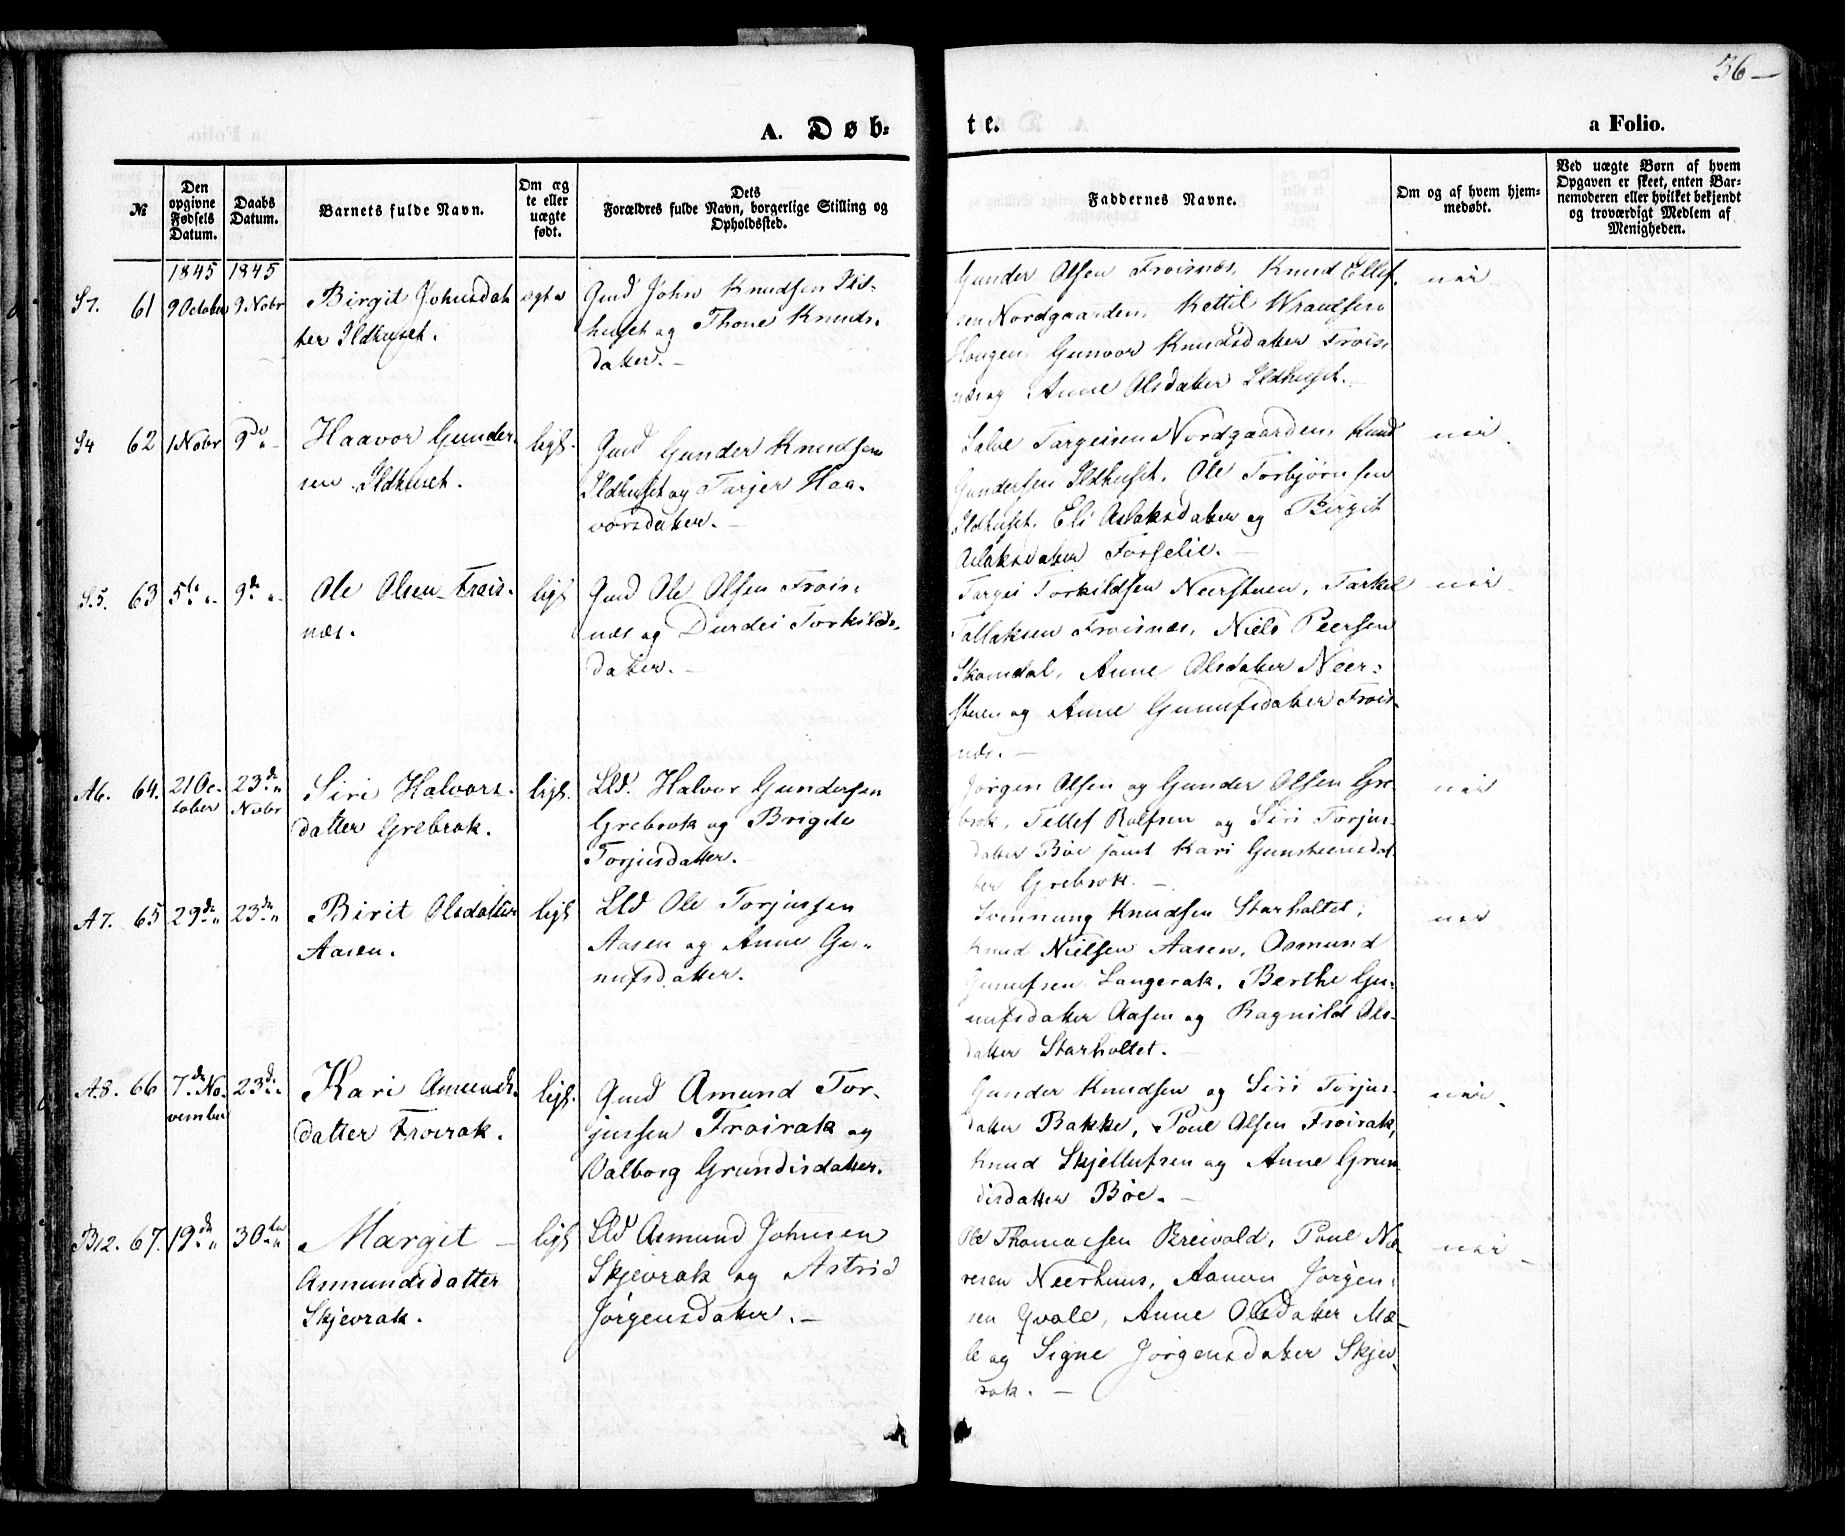 36
A. Døb-
te.
a Folio.
№
Den opgivne Fødsels Datum.
Daabs Datum.
Barnets fulde Navn.
Om ægte eller uægte født.
Dets Forældres fulde Navn, borgerlige Stilling og Opholdssted.
Faddernes Navne.
Om og af hvem hjemmedøbt.
Ved uægte Børn af hvem Opgaven er skeet, enten Barnemoderen eller hvilket bekjendt og troværdigt Medlem af Menigheden.
1845 1845
S7. 61 9 October 9 Nobr
Birgit Johnsdat
ter Ildhuset.
Gmd John Knudsen Ild-
huset og Thone Knuds-
datter. -
Gunder Olsen Froisnes, Knud Ellef-
sen Nordgaarden, Kettil Wraalsen
Haugen, Gunvor Knudsdatter Frois-
nes og Anne Olsdatter Ildhuset. -
nei
S4 62 1 Nobr 9do "
Haavor Gunder-
sen Ildhuset.
ligs.
Gmd Gunder Knudsen
Ildhuset og Tarjer Haa-
vorsdatter. -
Salve Targeisen Nordgaarden, Knud
Gundersen Ildhuset, Ole Torbjørnsen
Ildhuset, Eli Aslaksdatter og Birgit
Aslaksdatter Fosselie. -
nei.
S5. 63 5te " 9de "
Ole Olsen Frois-
næs.
ligs
Gmd Ole Olsen Frois-
næs og Durdei Torkilds-
datter. -
Targei Torkildsen Neerstuen, Tarkel
Tallaksen Froisnæs, Niels Peersen
Skomdal, Anne Olsdatter Neer-
stuen og Anne Gunufsdatter Frois-
næs. -
nei.
A6. 64. 21 Oc-
tober
23de "
Nobr
Siri Halvors-
datter Grebrok.
ligs.
Lld. Halvor Gundersen
Grebrok og Brigde
Torjusdatter.
Jørgen Olsen og Gunder Olsen Gre
brok, Tellef Rolfsen og Siri Torjus-
datter Bøe samt Kari Gunsteensdat-
ter Grebrok. -
nei
A7. 65 29de " 23de "
Birit Olsdatter
Aasen.
ligs
Lld Ole Torjussen
Aasen og Anne Gu-
nufsdatter.
Svennung Knudsen Starholtet,
Knud Nielsen Aasen, Asmund
Gunufsen Langerak, Berthe Gu-
nufsdatter Aasen og Ragnild Ols-
datter Starholtet. -
nei
A8. 66 7de No-
vember
23de "
Kari Amunds-
datter Froirak.
ligs.
Gmd Amund Tor-
jussen Froirak og
Valborg Grundisdatter.
Gunder Knudsen og Siri Torjus-
datter Bakke, Poul Olsen Froirak,
Knud Skjellufsen og Anne Grun-
disdatter Bøe. -
nei.
B12. 67. 19de " 30te "
Margit -
Asmundsdatter
Skjevrak.
ligs
Lld Asmund Johnsen
Skjevrak og Astrid
Jørgensdatter. -
Ole Thomassen Breivold, Poul Næ-
resen Neerhuus, Aanon Jørgen-
sen Qvale, Anne Olsdatter Mæ-
le og Signe Jørgensdatter Skjev-
rak. -
nei -